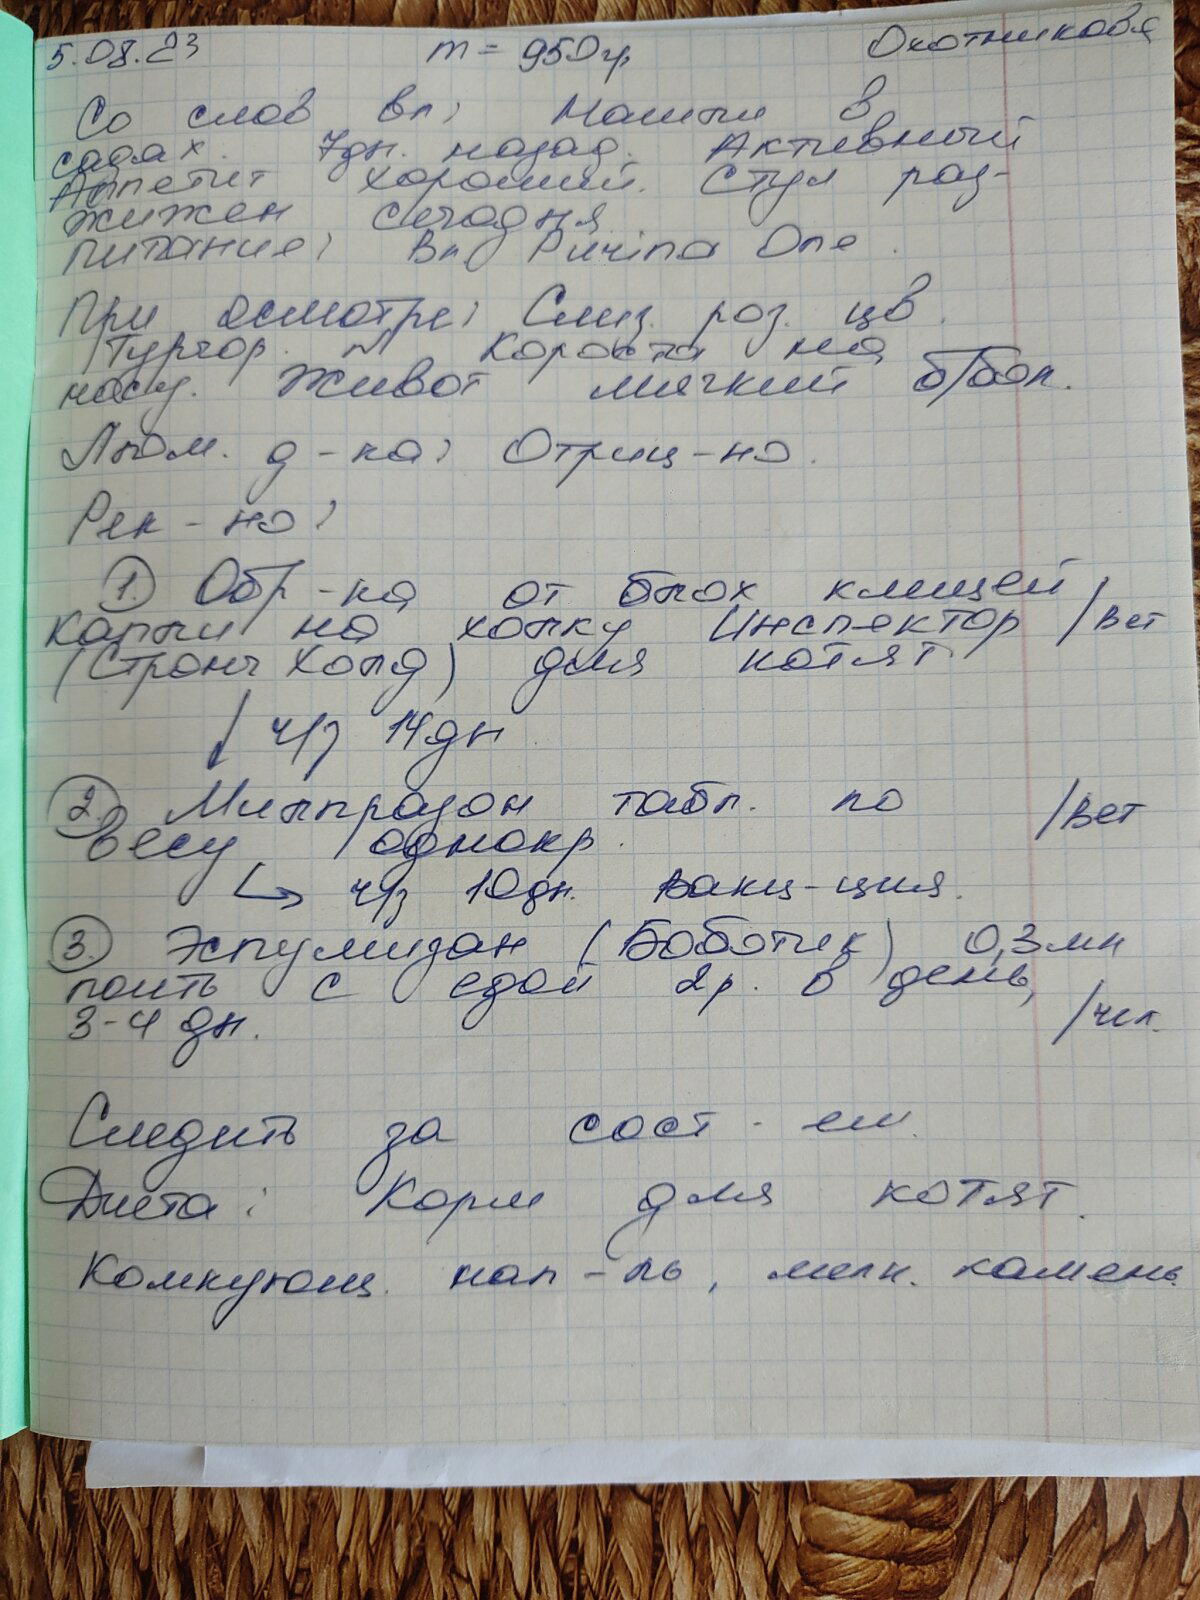 5.08.23 m = 950гр Охотникова
Со слов вл: Нашли в
садах. 7дн. назад. Активный
Аппетит хороший. Стул раз-
жижен сегодня
питание: Вл Purina One.
При осмотре: Слиз. роз. цв.
Тургор. N Короста на
носу. Живот мягкий б/бол.
Люм. д-ка: Отриц-но.
Рек-но:
1. Обр-ка от блох клещей
Капли на холку Инспектор /вет
(Стронг Холд) для котят
↓ ч/з 14дн
2. Милпразон табл. по /вет
весу однокр.
↳ ч/з 10дн. вакц-ция.
3. Эспумизан (Боботик) 0,3мл
поить с едой 2р. в день,
3-4 дн. /чел.
Следить за сост-ем.
Диета: Корм для котят.
Комкующ. нап-ль, мелк. камень.